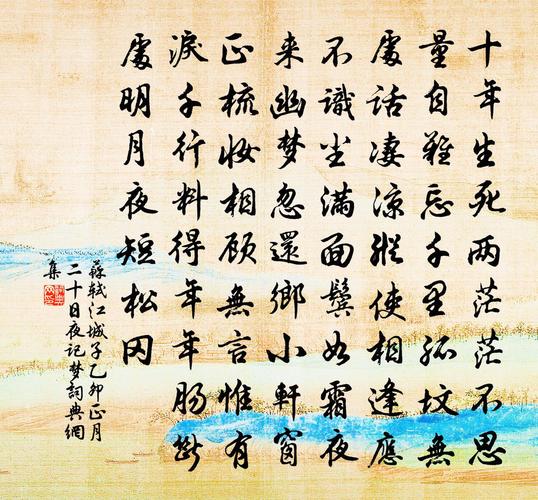 十年生死两茫茫不思
量自難忘千里孤坟無
處話凄凉縱使相逢應
不識尘满面鬓如霜夜
来幽梦忽還鄉小軒窗
正梳妆相顾無言惟有
淚千行料得年年肠断
處明月夜短松冈
蘇軾江城子乙卯正月
二十日夜记梦詞典網
集